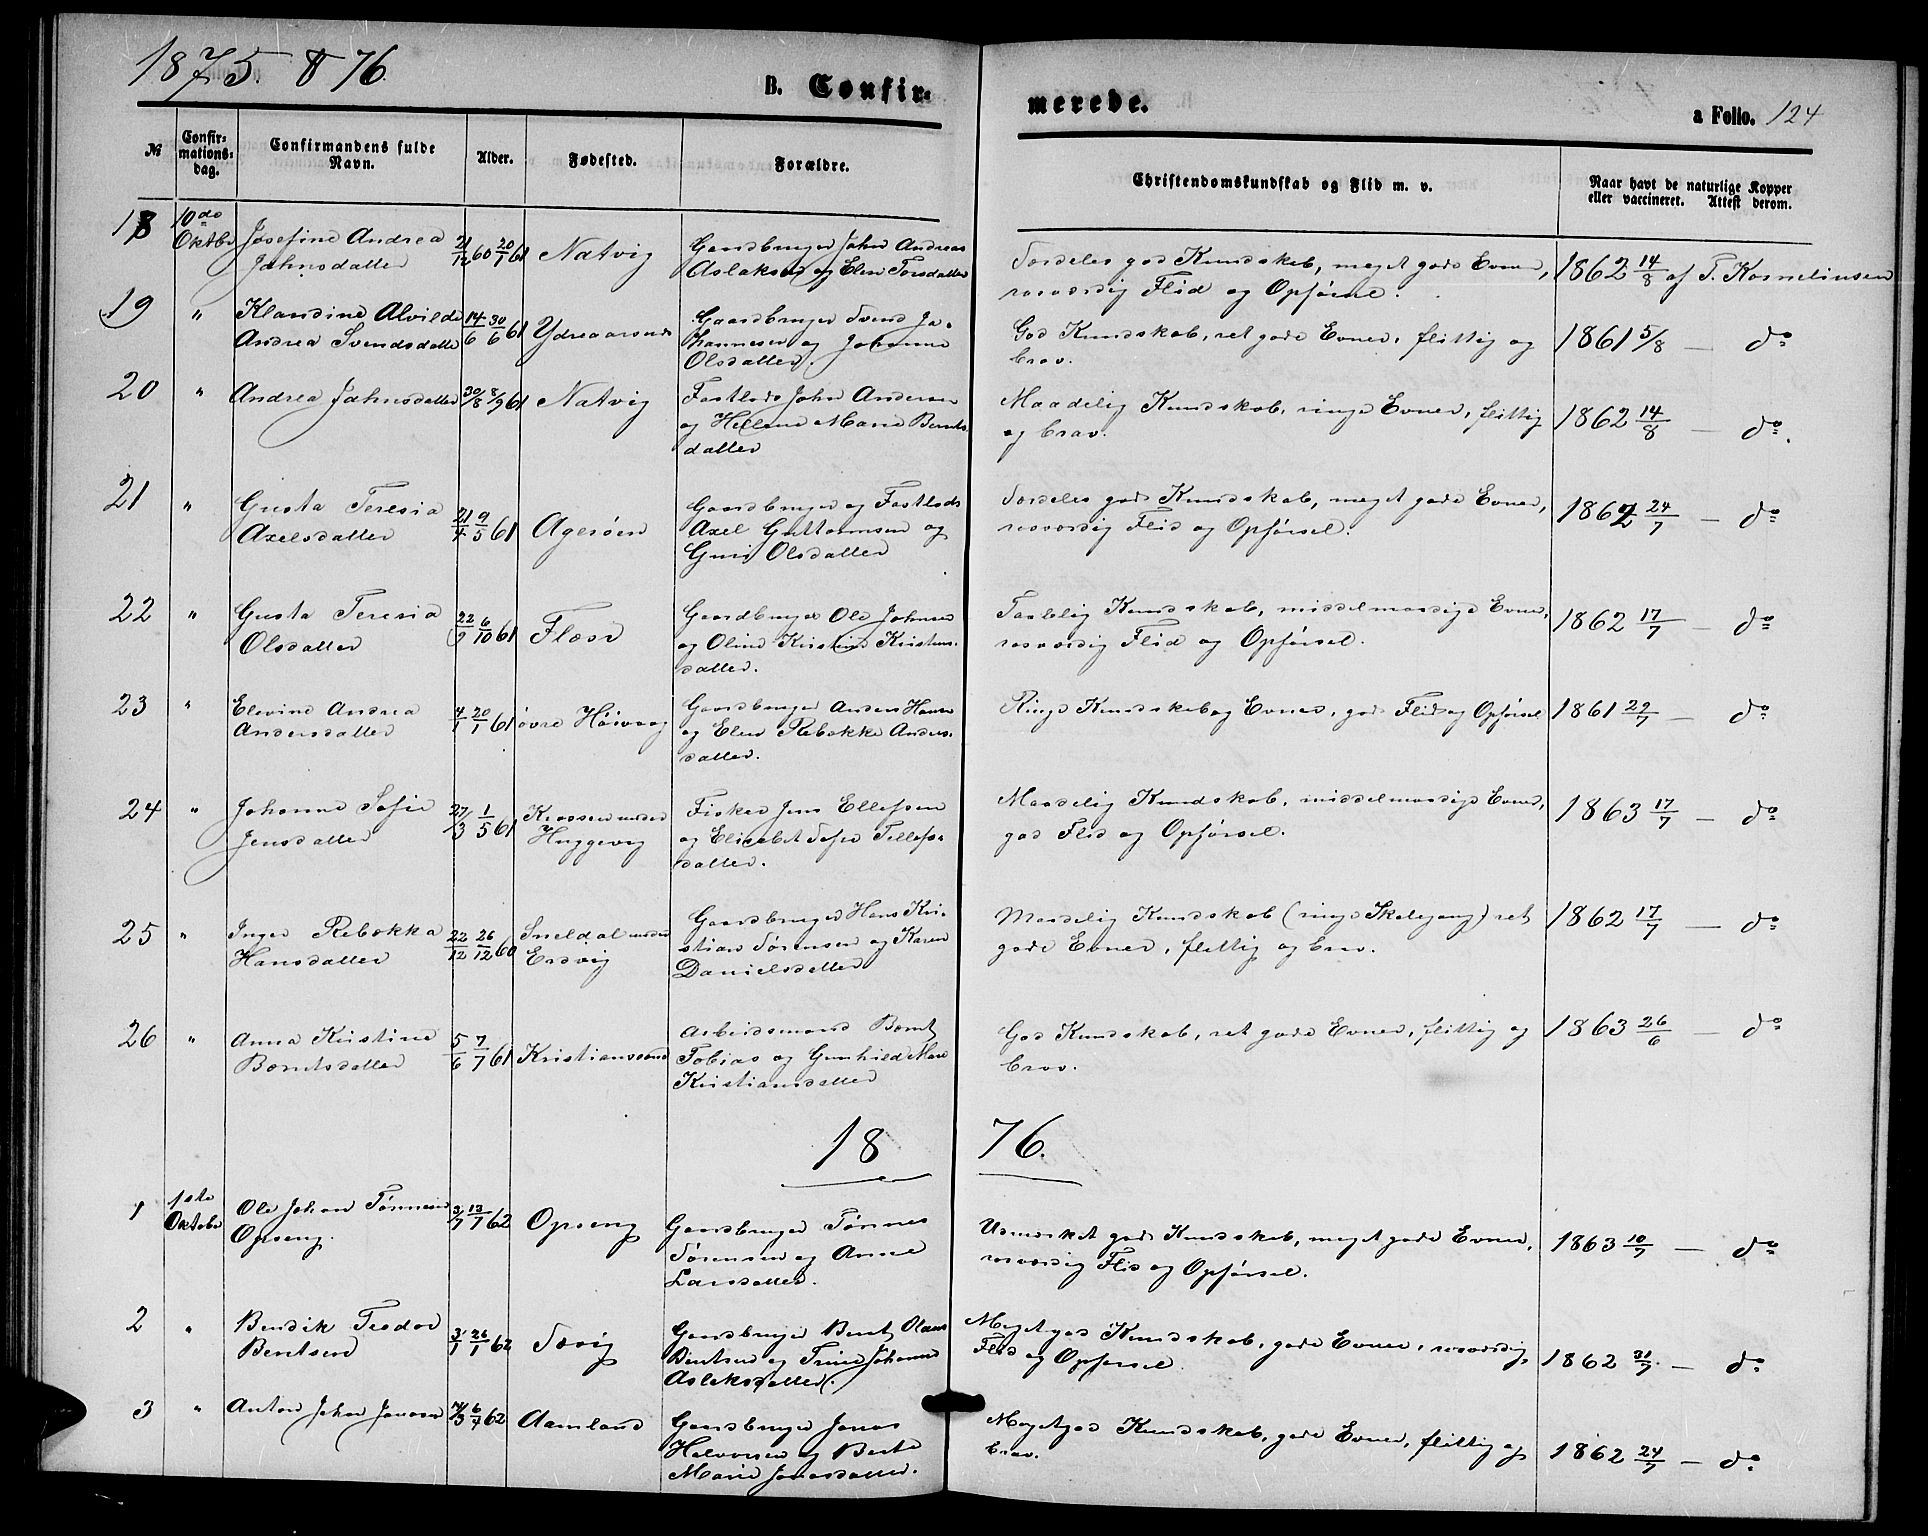 1875. 876.
B. Confir=
merede.
a Folio. 124
№
Confir=
mations=
dag.
Confirmandens fulde
Navn.
Alder.
Fødested.
Forældre.
Christendomskundskab og Flid m. v.
Naar havt de naturlige Kopper
eller vaccineret. Attest derom.
18 10de Oktbr Josefine Andrea 21/12 60 20/1 61 Natvig Gaardbruger John Andreas Særdeles god Kundskab, meget gode Evner, 1862 14/8 af T. Korneliussen
Johnsdatter Aslaksen og Elen Torsdatter rosværdig Flid og Opførsel.
19 " Klaudine Alvilde 14/6 30/6 61 Ydreaarsnes Gaardbruger Svend Jo- God Kundskab, ret gode Evner, flittig og 1861 5/8 — do
Andrea Svendsdatter hannesen og Johanne brav.
Olsdatter.
20 " Andrea Jahnsdatter 30/8 8/9 61 Natvig Fastlods John Andersen Maadelig Kundskab, ringe Evner, flittig 1862 14/8 — do.
og Hellene Marie Bernts- og brav.
datter
21 " Gusta Teresia 21/4 9/5 61 Agerøen Gaardbruger og Fastlods Særdeles gode Kundskab, meget gode Evner, 1862 24/7 — do
Axelsdatter Axel Guttormsen og rosværdig Flid og Opførsel.
Guri Olsdatter
22 " Gusta Teresia 22/9 6/10 61 Flæse Gaardbruger Ole Johnsen Taalelig Kundskab, middelmaadige Evner, 1862 17/7 — do
Olsdatter og Oline Kristine Kristens- rosværdig Flid og Opførsel.
datter.
23 " Elevine Andrea 4/1 20/1 61 øvre Høivaag Gaardbruger Anders Hansen Ringe Kundskab og Evner, god Flid og Opførsel 1861 29/7 — do
Andersdatter og Elen Rebekke Anders-
datter.
24 " Johanne Sofie 27/3 1/5 61 Krossen under Fisker Jens Ellefsen Maadelig Kundskab, middelmaadige Evner, 1863 17/7 — do
Jensdatter Huggevig og Elisabet Sofie Tellefs- god Flid og Opførsel.
datter.
25 " Inger Rebekka 22/12 26/12 60 Sneldal under Gaardbruger Hans Kri- Maadelig Kundskab (ringe Skolegang) ret 1862 17/7 — do
Hansdatter Ersvig stian Sørensen og Karen gode Evner, flittig og brav.
Danielsdatter
26 " Anna Kristine 5/6 7/7 61 Kristianssand Arbeidsmand Bernt God Kundskab, ret gode Evner, flittig og 1863 26/6 — do
Berntsdatter Tobias og Gunhild Mare brav.
Kristiansdatter
18 76.
1 1ste Oktobr Ole Johan Tønnesen 3/7 13/7 62 Opseng Gaardbruger Tønnes Udmærket gode Kundskab, meget gode Evner, 1863 10/7 — do
Opseng. Sørensen og Anne rosværdig Flid og Opførsel.
Larsdatter.
2 " Bendik Teodor 3/1 26/1 62 Sævig Gaardbruger Bent Olaus Meget god Kundskab, gode Evner, rosværdig 1862 31/7. — do
Bentsen Bentsen og Trine Johanne Flid og Opførsel.
Aslaksdatter.
3 " Anton Johan Jonassen 6/7 62 Aamland Gaardbruger Jonas Meget god Kundskab, gode Evner, flittig og 1862 24/7 — do
Halvorsen og Berte brav.
Marie Jonasdatter.